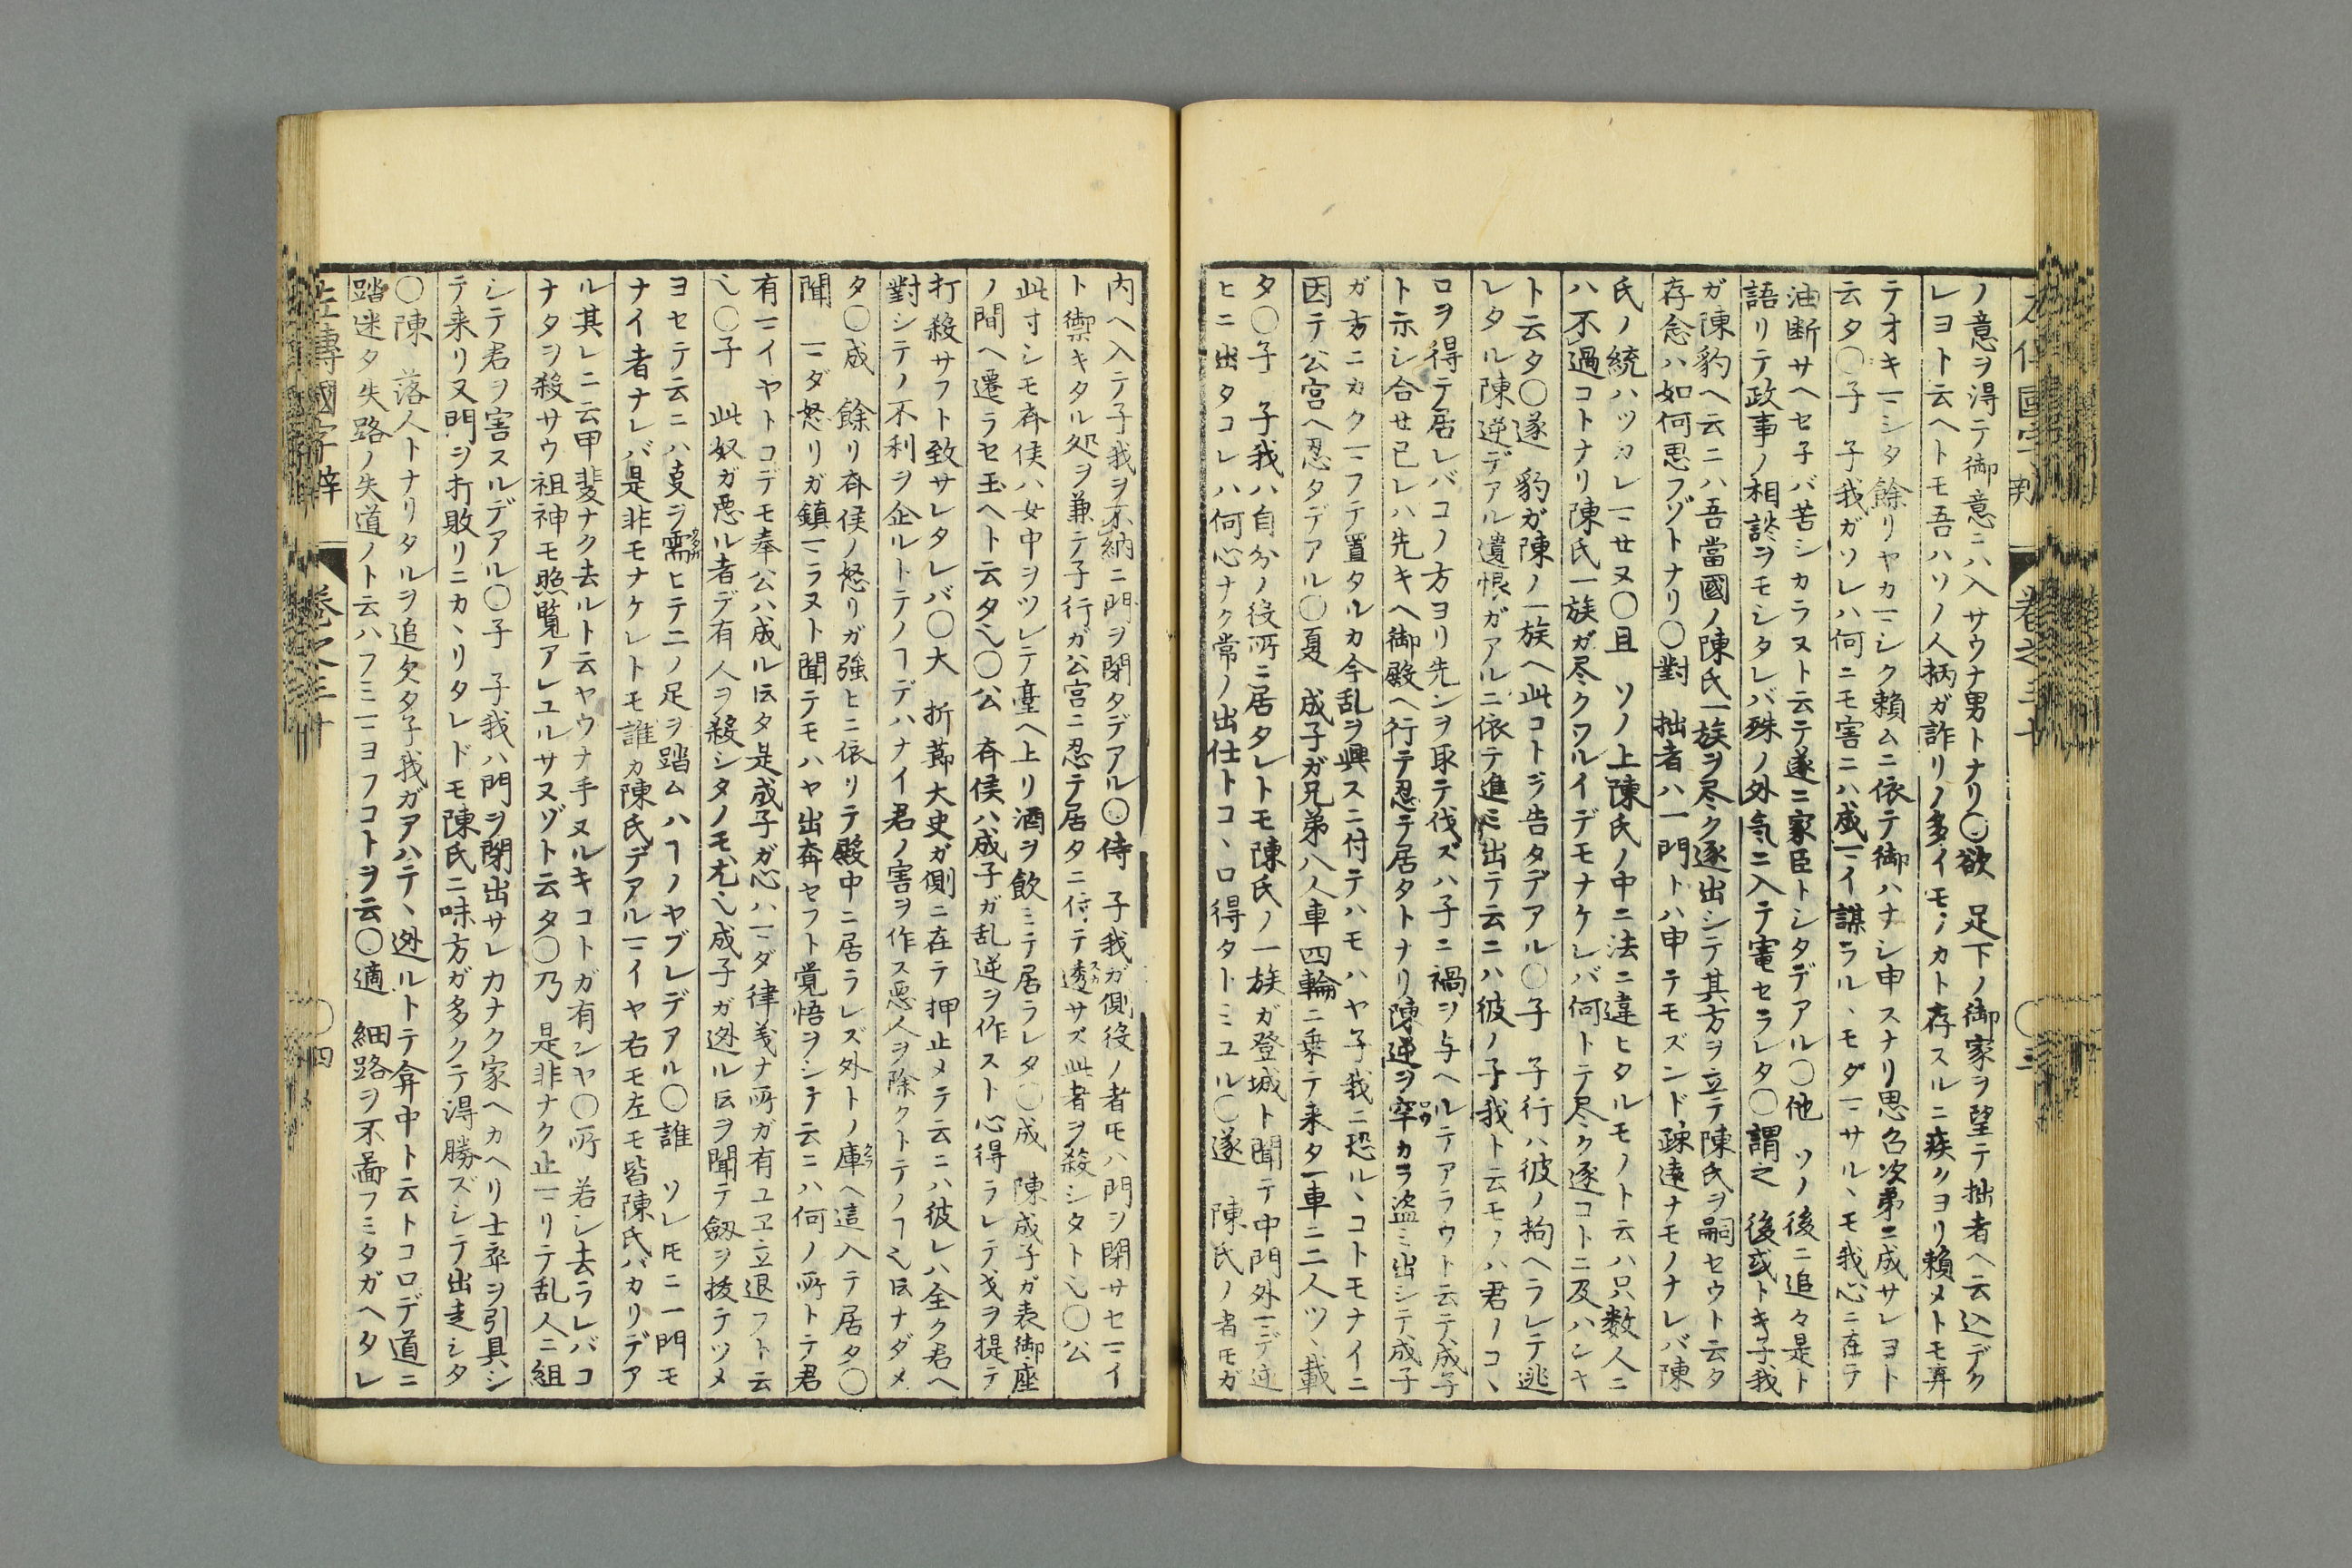 ノ意ヲ得テ御意ニハ入サウナ男トナリ〇欲　足下ノ御家ヲ望テ拙者ヘ云込デク
レヨト云ヘトモ吾ハソノ人柄ガ詐リノ多イモノカト存スルニ疾クヨリ頼メトモ弄
テオキマシタ餘リヤカマシク頼ムニ依テ御ハナシ申スナリ思召次第ニ成サレヨト
云タ〇子　子我ガソレハ何ニモ害ニハ成マイ謀ラルヽモダマサルヽモ我心ニ在テ
油断サヘセ子バ苦シカラヌト云テ遂ニ家臣トシタデアル〇他　ソノ後ニ追々是ト
語リテ政事ノ相談ヲモシタレバ殊ノ外気ニ入テ寵セラレタ〇謂之　後或トキ子我
ガ陳豹ヘ云ニハ吾當國ノ陳氏一族ヲ尽ク逐出シテ其方ヲ立テ陳氏ヲ嗣セウト云タ
存念ハ如何思フゾトナリ〇對　拙者ハ一門トハ申テモズンド疎遠ナモノナレバ陳
氏ノ統ハツカレマせヌ〇且　ソノ上陳氏ノ中ニ法ニ違ヒタルモノト云ハ只数人ニ
ハ不過コトナリ陳氏一族ガ尽クワルイデモナケレバ何トテ尽ク逐コトニ及ハンヤ
ト云タ〇遂　豹ガ陳ノ一族ヘ此コトヲ告タデアル〇子　子行ハ彼ノ拘ヘラレテ逃
レタル陳逆デアル遺恨ガアルニ依テ進ミ出テ云ニハ彼ノ子我ト云モノハ君ノコヽ
ロヲ得テ居レバコノ方ヨリ先ンヲ取テ伐ズハ子ニ禍ヲ与ヘルテアラウト云テ成子
ト示シ合せ已レハ先キヘ御殿ヘ行テ忍テ居タトナリ陳逆ヲ牢カラ盗ミ出シテ成子
ガ方ニカクマフテ置タルカ今乱ヲ興スニ付テハモハヤ子我ニ恐ルヽコトモナイニ
因テ公宮ヘ忍タデアル〇夏　成子ガ兄弟八人車四輪ニ乗テ来タ一車ニ二人ツヽ載
タ〇子　子我ハ自分ノ役所ニ居タレトモ陳氏ノ一族ガ登城ト聞テ中門外マデ迎
ヒニ出タコレハ何心ナク常ノ出仕トコヽロ得タトミユル〇遂　陳氏ノ者𪜈ガ
内ヘ入テ子我ヲ不納ニ門ヲ閉タデアル〇侍　子我ガ側役ノ者𪜈ハ門ヲ閉サセマイ
ト禦キタル処ヲ兼テ子行ガ公宮ニ忍テ居タニ付テ透サズ此者ヲ殺シタト也〇公
此寸シモ斉侯ハ女中ヲツレテ臺ヘ上リ酒ヲ飲ミテ居ラレタ〇成　陳成子ガ表御座
ノ間ヘ遷ラセ玉ヘト云タ也〇公　斉侯ハ成子ガ乱逆ヲ作スト心得ラレテ戈ヲ提テ
打殺サフト致サレタレバ〇大　折節大史ガ側ニ在テ押止メテ云ニハ彼レハ全ク君ヘ
對シテノ不利ヲ企ルトテノヿデハナイ君ノ害ヲ作ス悪人ヲ除クトテノヿ也ト云ナダメ
タ〇成　餘リ斉侯ノ怒リガ強ヒニ依リテ殿中ニ居ラレズ外トノ庫ヘ這入テ居タ〇
聞　マダ怒リガ鎮マラヌト聞テモハヤ出奔セフト覚悟ヲシテ云ニハ何ノ所トテ君
有マイヤトコデモ奉公ハ成ル𪜈タ是成子ガ心ハマダ律義ナ所ガ有ユヱ立退フト云
也〇子　此奴ガ悪ル者デ有人ヲ殺シタノモ尤也成子ガ迯ル𪜈ヲ聞テ劔ヲ抜テツメ
ヨセテ云ニハ㕝ヲ需ヒテ二ノ足ヲ踏ムハヿノヤブレデアル〇誰　ソレ𪜈ニ一門モ
ナイ者ナレバ是非モナケレトモ誰カ陳氏デアルマイヤ右モ左モ皆陳氏バカリデア
ル其レニ云甲斐ナク去ルト云ヤウナ手ヌルキコトガ有ンヤ〇所　若シ去ラレバコ
ナタヲ殺サウ祖神モ照覧アレユルサヌゾト云タ〇乃　是非ナク止マリテ乱人ニ組
シテ君ヲ害スルデアル〇子　子我ハ門ヲ閉出サレカナク家ヘカヘリ士卒ヲ引具シ
テ来リ又門ヲ打敗リニカヽリタレドモ陳氏ニ味方ガ多クテ得勝ズシテ出走シタ
〇陳　落人トナリタルヲ追タタ子我ガアハテヽ迯ルトテ弇中ト云トコロデ道ニ
踏迷タ失路ノ失道ノト云ハフミマヨフコトヲ云〇適　細路ヲ不畱フミタガヘタレ
左傳國字辯　巻之三十　〇四